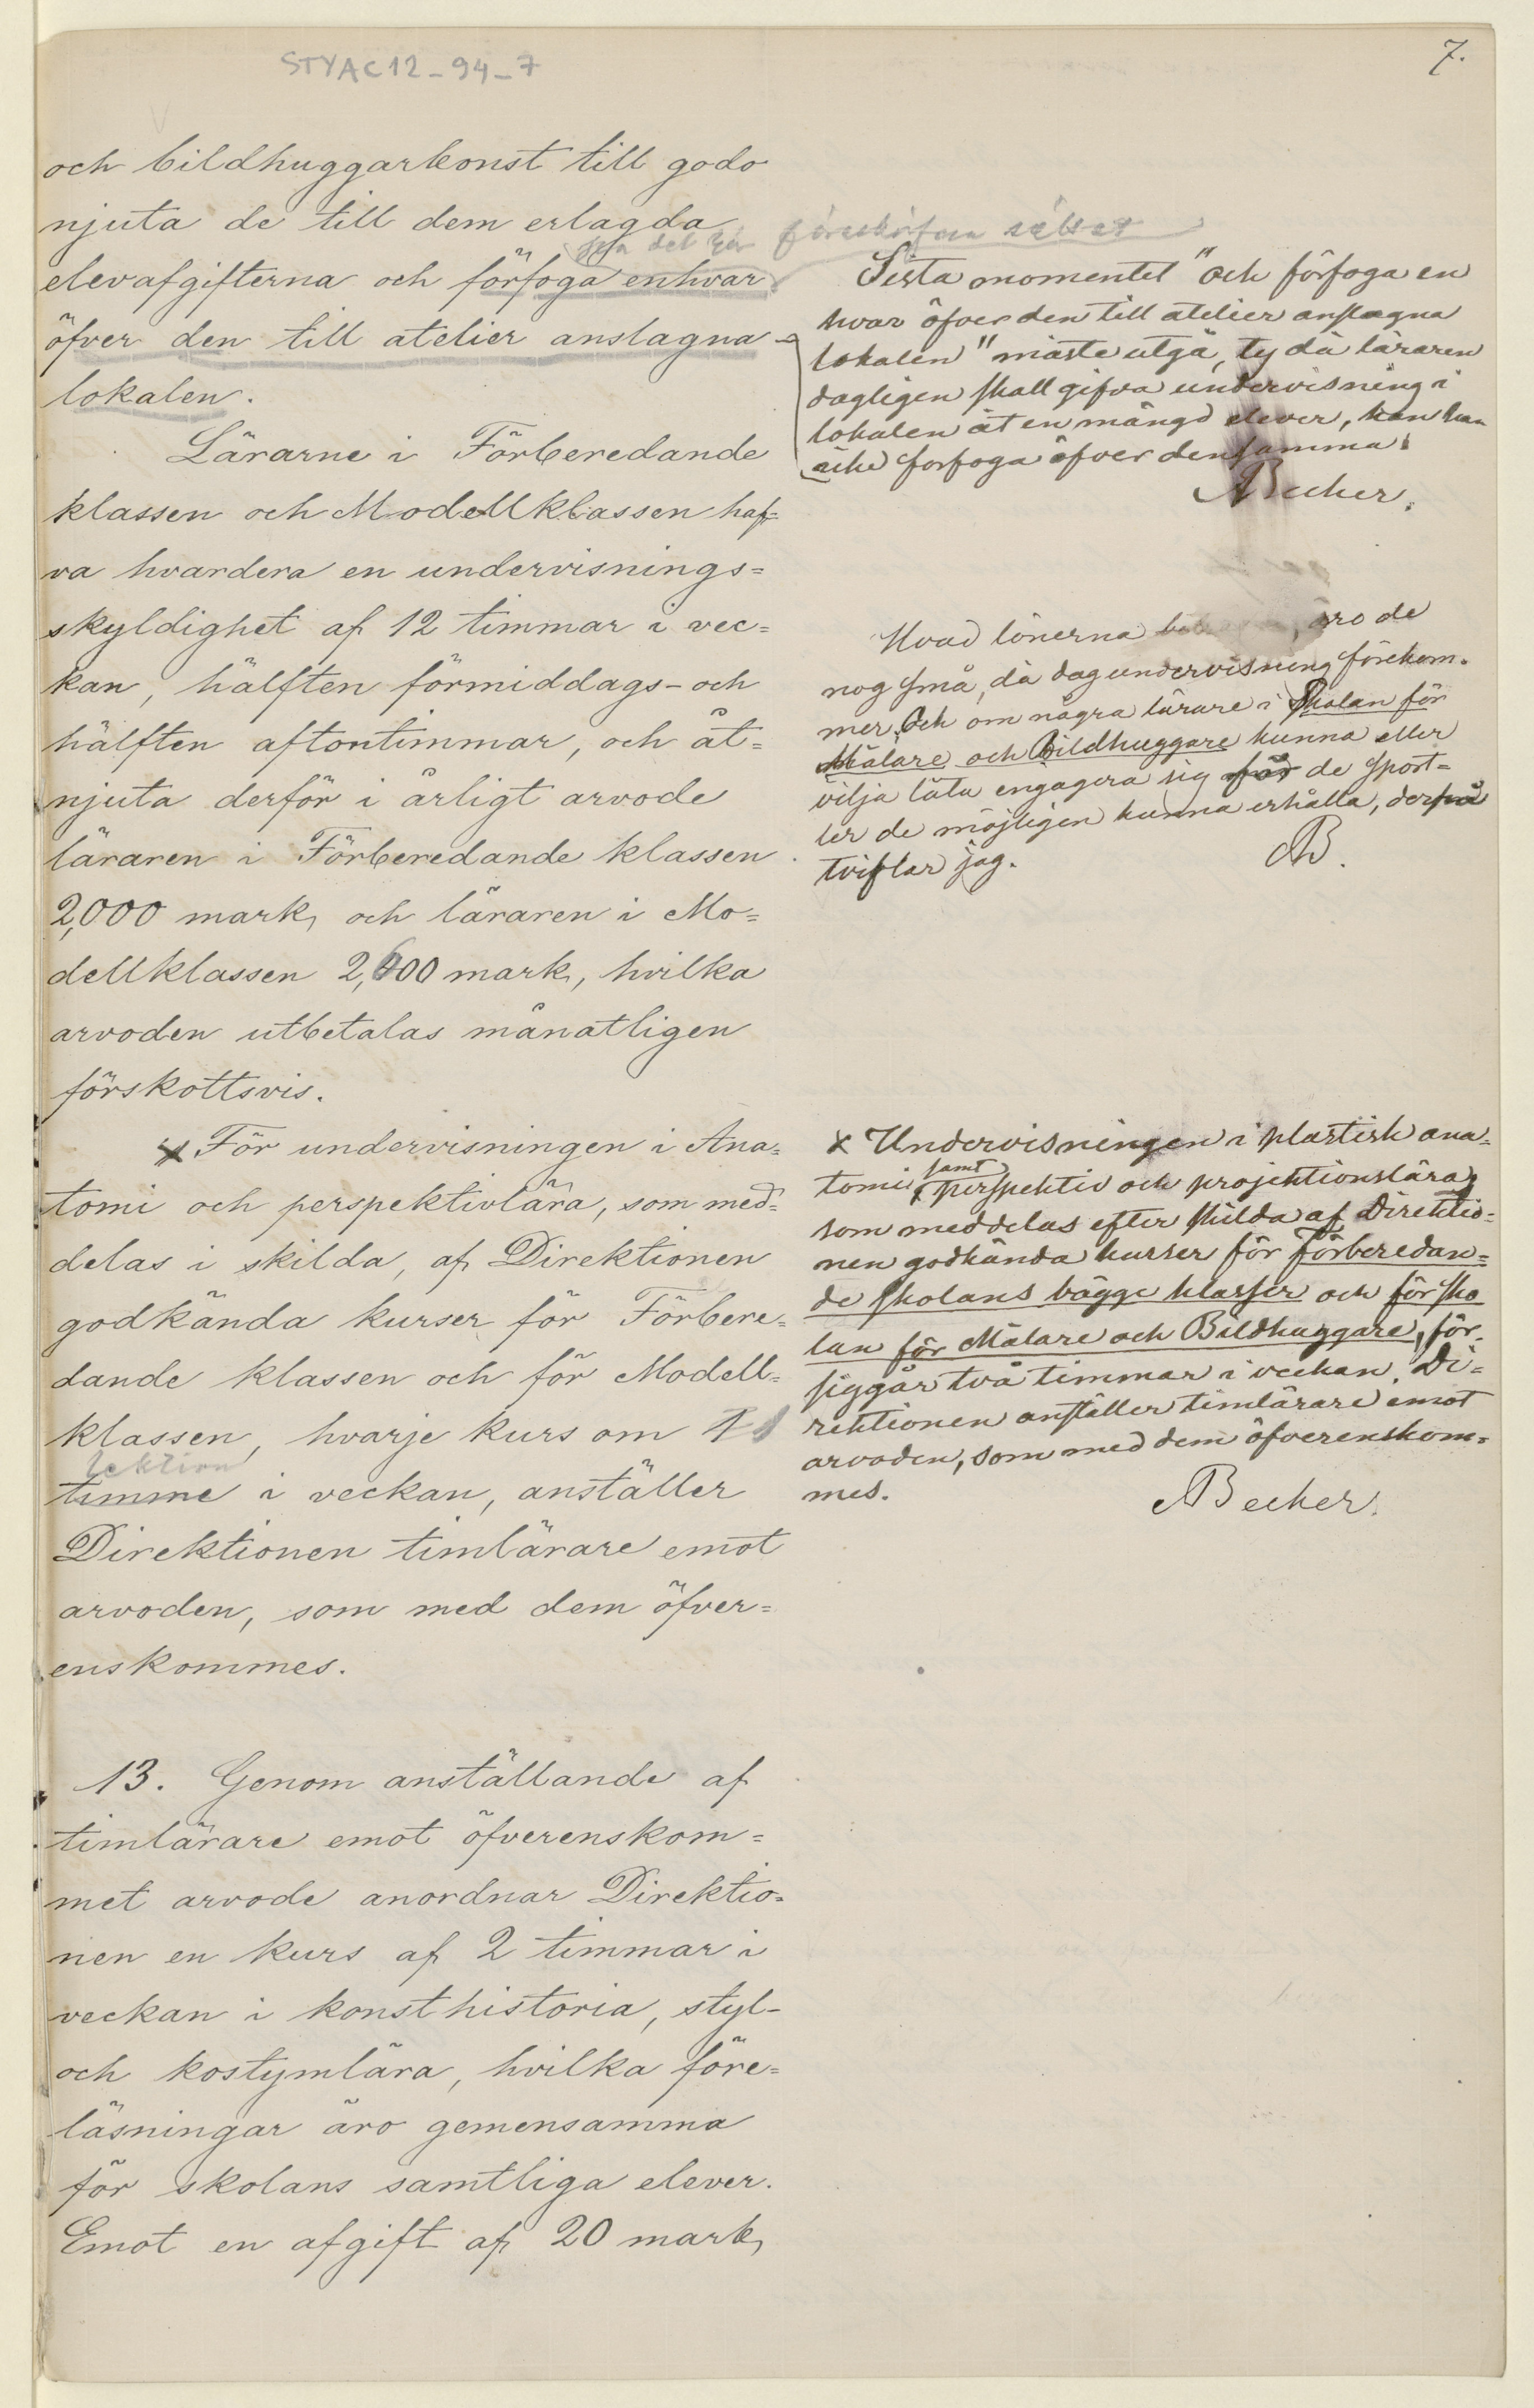 STYAC12-94-7
7.
och bildhuggarkonst till godo
njuta de till dem erlagda
elevafgifterna och förfoga enhvar
öfver den till atelier anslagna
lokalen.
Lärarne i Förberedande
klassen och Modellklassen haf=
va hvardera en undervisnings=
skyldighet af 12 timmar i vec=
kan, hälften förmiddags- och
hälften aftontimmar, och åt=
njuta derför i årligt arvode
läraren i Förberedande klassen
2,000 mark, och läraren i Mo=
dellklassen 2,600 mark, hvilka
arvoden utbetalas månatligen
förskottsvis.
x För undervisningen i Ana=
tomi och perspektivlära, som med=
delas i skilda, af Direktionen
godkända kurser för Förbere=
dande klassen och för Modell=
klassen, hvarje kurs om 1
lektion
timme i veckan, anställer
Direktionen timlärare emot
arvoden, som med dem öfver=
enskommes.
13. Genom anställande af
timlärare emot öfverenskom=
met arvode anordnar Direktio=
nen en kurs af 2 timmar i
veckan i konsthistoria, styl-
och kostymlära, hvilka före=
läsningar äro gemensamma
för skolans samtliga elever.
Emot en afgift af 20 mark,
Sista momentet "och förfoga en
hvar öfver den till atelier anslagna
lokalen" måste utgå, ty då läraren
dagligen skall gifva undervisning i
lokalen åt en mängd elever, kan han
icke förfoga öfver densamma.
ABecker.
Hvad lönerna äro de
nog små, då dagundervisning förekom=
mer. Och om några lärare i Skolan för
Målare och Bildhuggare kunna eller
vilja låta engagera sig för de sport=
ler de möjligen kunna erhålla, derpå
tviflar jag.
AB.
x Undervisningen i plastisk ana=
tomi samt perspektiv och projektionslära,
som meddelas efter skilda af Direktio=
nen godkända kurser för förberedan=
de skolans bägge klasser och för sko
lan för Målare och Bildhuggare, för
siggår två timmar i veckan. Di=
rektionen anställer timlärare emot
arvoden, som med dem öfverenskom=
mes.
ABecker.